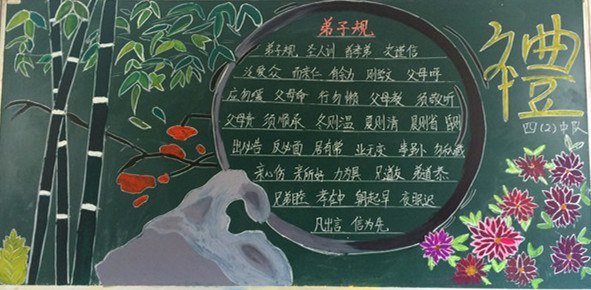 弟子规
弟子规 圣人训 首孝弟 次谨信
泛爱众 而亲仁 有余力 则学文 父母呼
应勿缓 父母命 行勿懒 父母教 须敬听
父母责 须顺承 冬则温 夏则清 则省 昏则
出必告 反必面 居有常 业无变 事虽小 勿私藏
亲心伤 亲所好 力为具 兄道友 弟道恭
兄弟睦 孝在中 朝起早 夜眠迟
凡出言 信为先
禮
四(2)中队